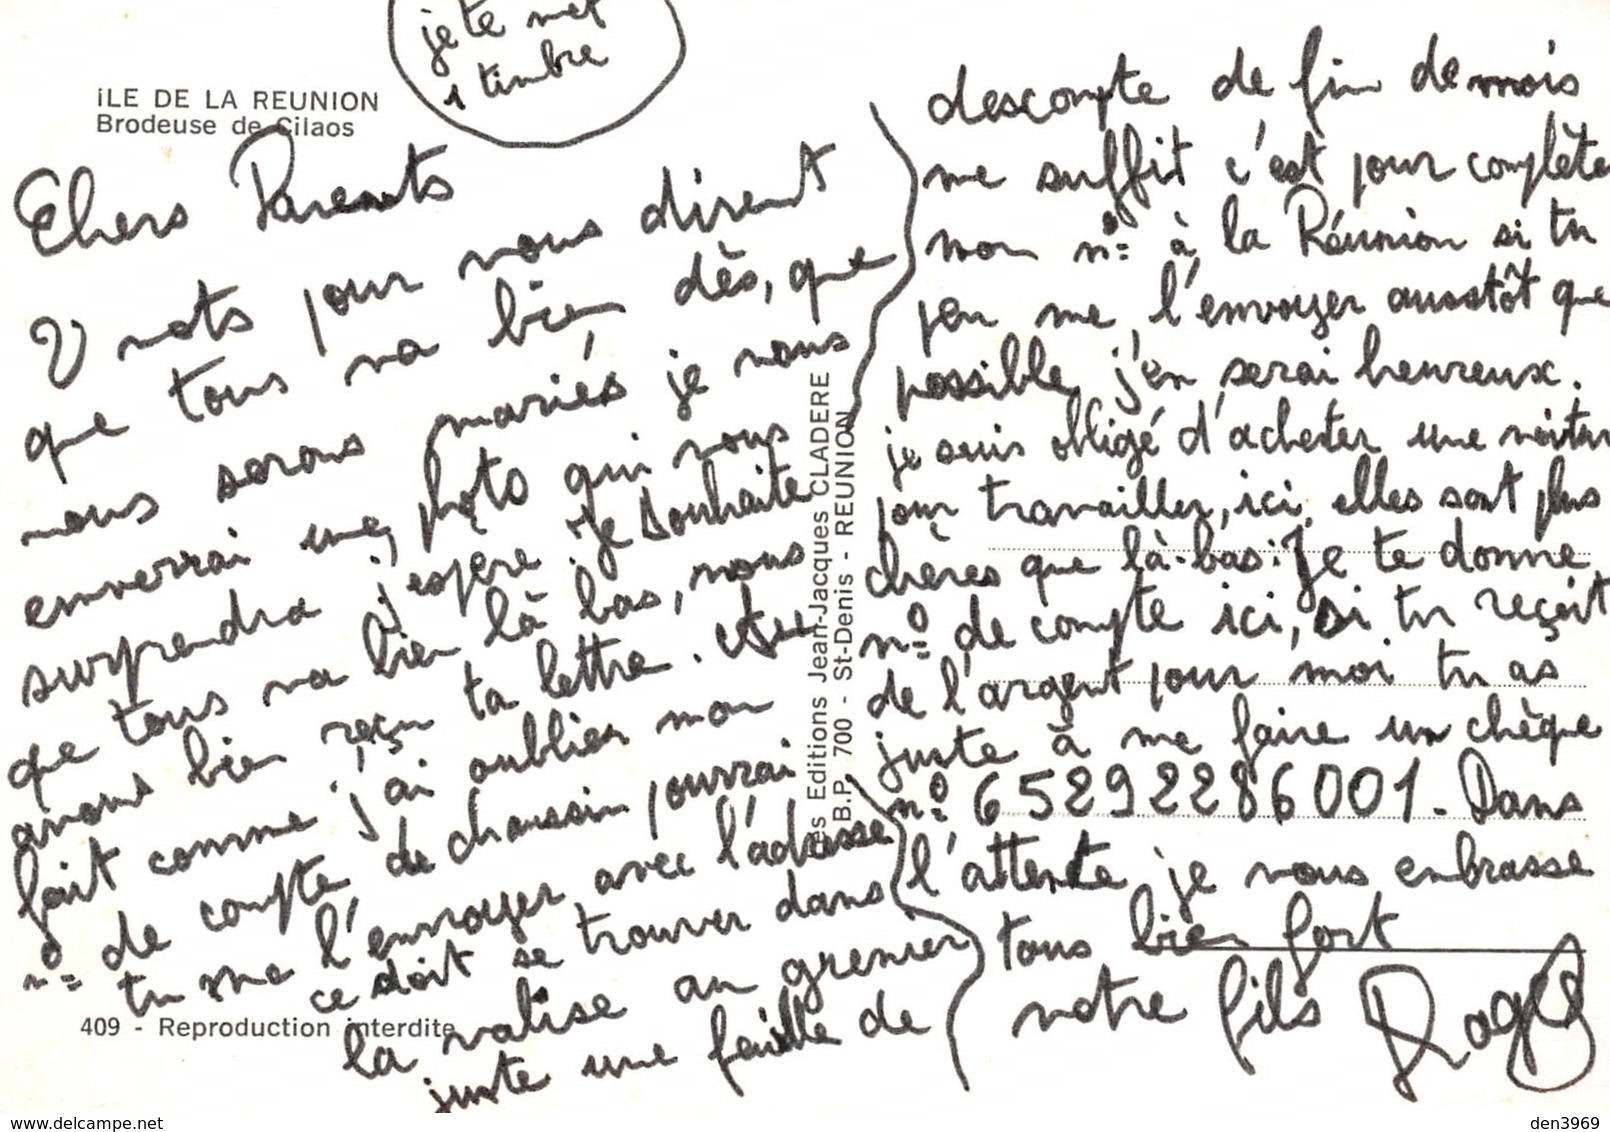 je te met
1 timbre
ILE DE LA REUNION
Brodeuse de Cilaos
Chers Parents
2 mots pour vous dirent
que tous va bien dès, que
nous serons mariés je vous
enverrai une photo qui vous
surprendra j'espère. je souhaite
que tous va bien là bas, nous
avons bien reçu ta lettre. Au
fait comme j'ai oublier mon
n° de compte de chaussin pourrai
tu me l'envoyer avec l'adresse
ce doit se trouver dans
la valise au grenier
juste une feuille de
409 - Reproduction interdite
Les Editions Jean-Jacques CLADERE
B.P. 700 - St-Denis - REUNION
descompte de fin de mois
me suffit c'est pour complète
mon n° à la Réunion si tu
peu me l'envoyer ausstôt que
possible j'en serai heureux.
je suis obligé d'acheter une voitur
pour travailler, ici, elles sont plus
chères que là-bas. Je te donne
n° de compte ici, si tu reçoit
de l'argent pour moi tu as
juste à me faire un chèque
n° 65292286001. Dans
l'attente je vous embrasse
tous bien fort
votre fils Roger
www.delcampe.net
den3969